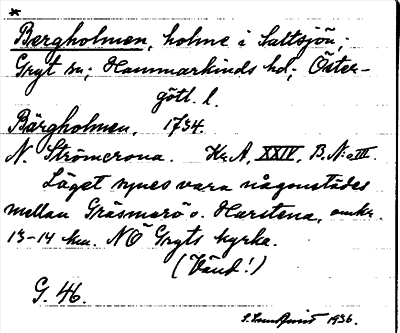 *
Bergholmen, holme i Saltsjön;
Gryt sn; Hammarkinds hd; Öster-
götl. l.
Bärgholmen, 1734.
N. Strömcrona. Kr. A, XXIV, B. N:o III.
Läget synes vara någonstädes
mellan Gräsmarö o. Harstena, omkr.
13-14 km. NÖ Gryts kyrka.
(Vänd!)
G. 46.
S. Lundquist 1936.